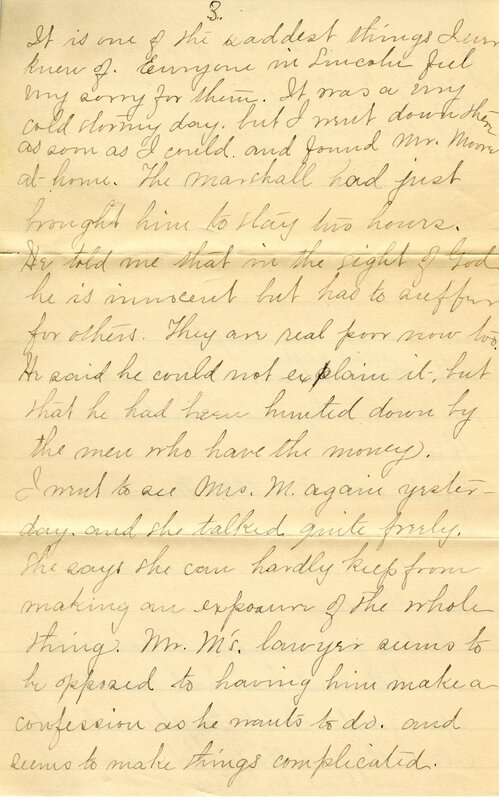 3.
It is one of the saddest things I ever
knew of. Everyone in Lincoln feel
very sorry for them. It was a very
cold stormy day. but I went down then
as soon as I could and found Mr. Moore
at home. The marshall had just
brought him to stay two hours.
He told me that in the sight of God
he is innocent but has to suffer
for others. They are real poor now too.
He said he could not explain it, but
that he had been hunted down by
the men who have the money.
I went to see Mrs. M. again yester-
day. and she talked quite freely.
She says she can hardly keep from
making an exposure of the whole
thing. Mr. M's. lawyer seems to
be opposed to having him make a
confession as he wants to do. and
seems to make things complicated.